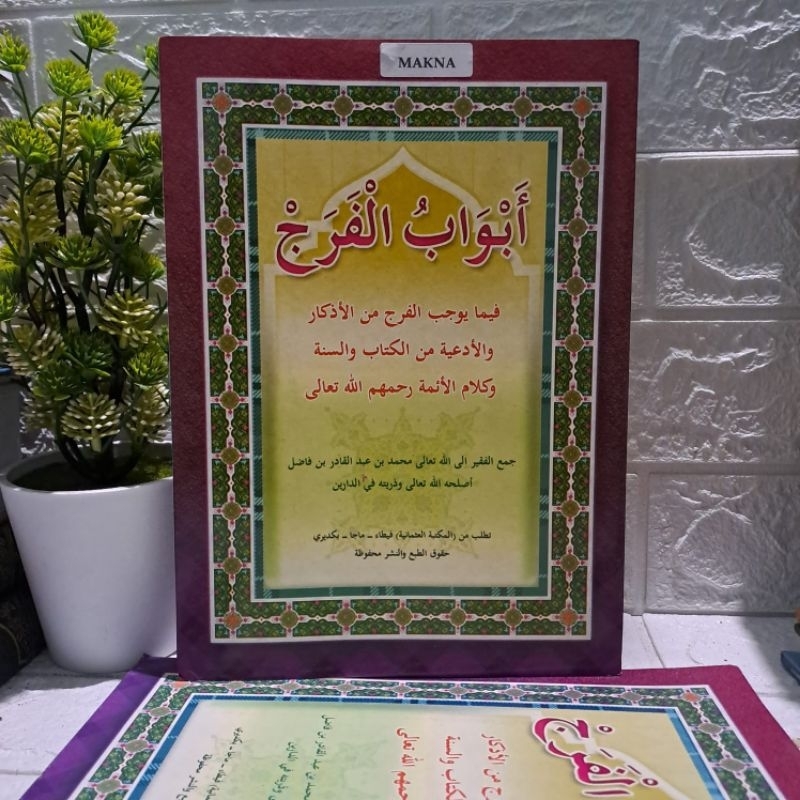 MAKNA
أَبْوَابُ الْفَرَجْ
فيما يوجب الفرج من الأذكار
والأدعية من الكتاب والسنة
وكلام الأئمة رحمهم الله تعالى
جمع الفقير الى الله تعالى محمد بن عبد القادر بن فاضل
أصلحه الله تعالى وذريته في الدارين
تطلب من (المكتبة العثمانية) فيطاء ـ ماجا ـ بكديري
حقوق الطبع والنشر محفوظة
الْفَرَجْ
من الأذكار
الكتاب والسنة
رحمهم الله تعالى